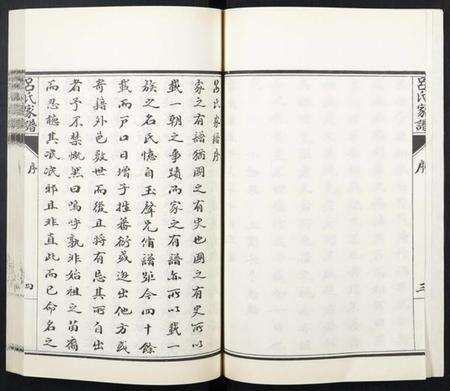 呂氏家譜
序
三
呂氏家譜序
家之有譜猶國之有史也國之有史所以
載一朝之事蹟而家之有譜亦所以載一
族之名氏憶自玉聲兄脩譜距今四十餘
載而戸口日增子姓蕃衍或遊出他方或
寄籍外邑数世而後且将有忘其所自出
者予不禁慨然曰嗚呼孰非始祖之苗裔
而忍聽其泯泯邪且非直此而已命名之
呂氏家譜
序
四